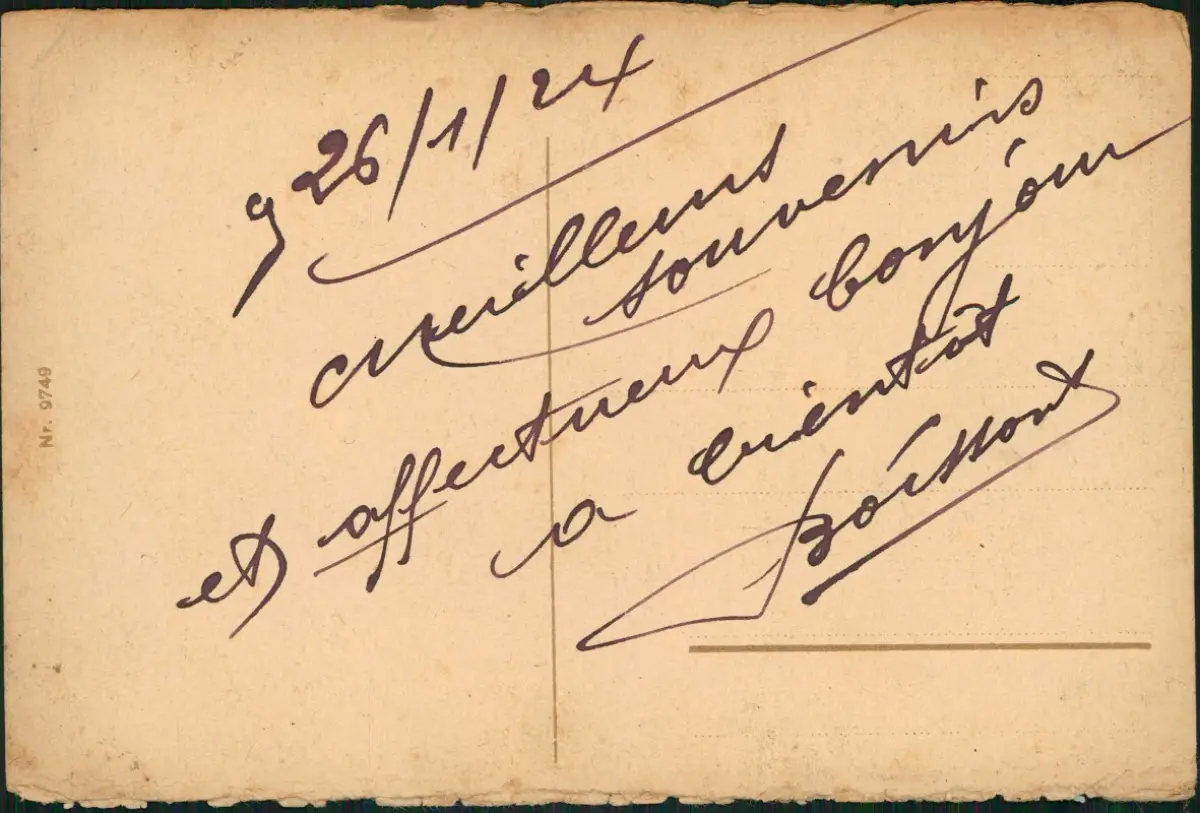 g 26/1/24
Meilleurs
souvenirs
et affectueux bonjour
a bientôt
Boissont
Nr. 9749